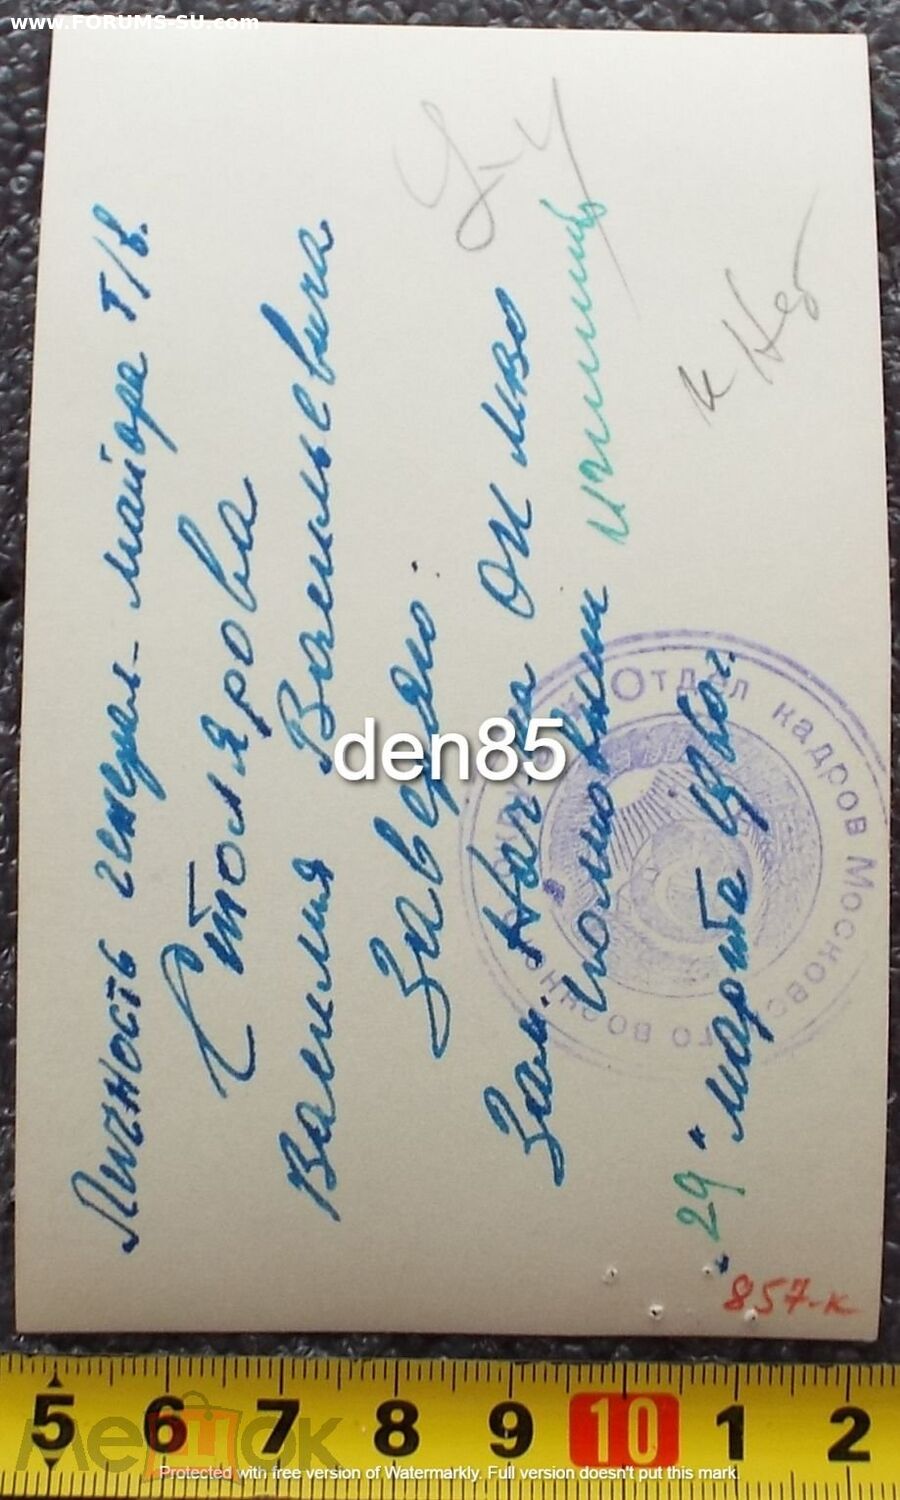 www.FORUMS-SU.com
Личность генерал-майора т/в.
Столярова
Василия Васильевича
Заверяю:
Зам. Нач-ка ОК МВО
полковник
"29" марта
Отдел кадров Московского военно
857-к
den85
5 6 7 8 9 10 1 2
мешок
Protected with free version of Watermarkly. Full version doesn't put this mark.